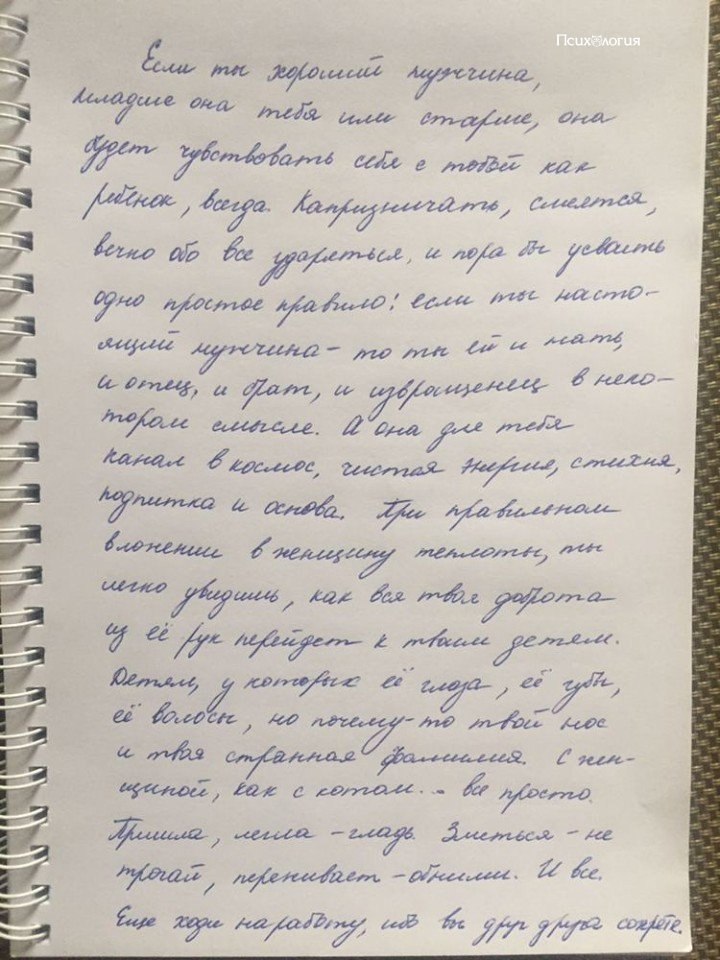 Психология
Если ты хороший мужчина,
младше она тебя или старше, она
будет чувствовать себя с тобой как
ребенок, всегда. Капризничать, смеятся,
вечно обо все ударяться, и пора бы усвоить
одно простое правило: если ты насто-
ящий мужчина - то ты ей и мать,
и отец, и брат, и извращенец в неко-
тором смысле. А она для тебя
канал в космос, чистая энергия, стихия,
подпитка и основа. При правильном
вложении в женщину теплоты, ты
легко увидишь, как вся твоя доброта
из её рук перейдет к твоим детям.
Детям, у которых её глаза, её губы,
её волосы, но почему-то твой нос
и твоя странная фамилия. С жен-
щиной, как с котом... все просто.
Пришла, легла - гладь. Злиться - не
трогай, переживает - обними. И все.
Еще ходи на работу, ибо вы друг друга сожрете.